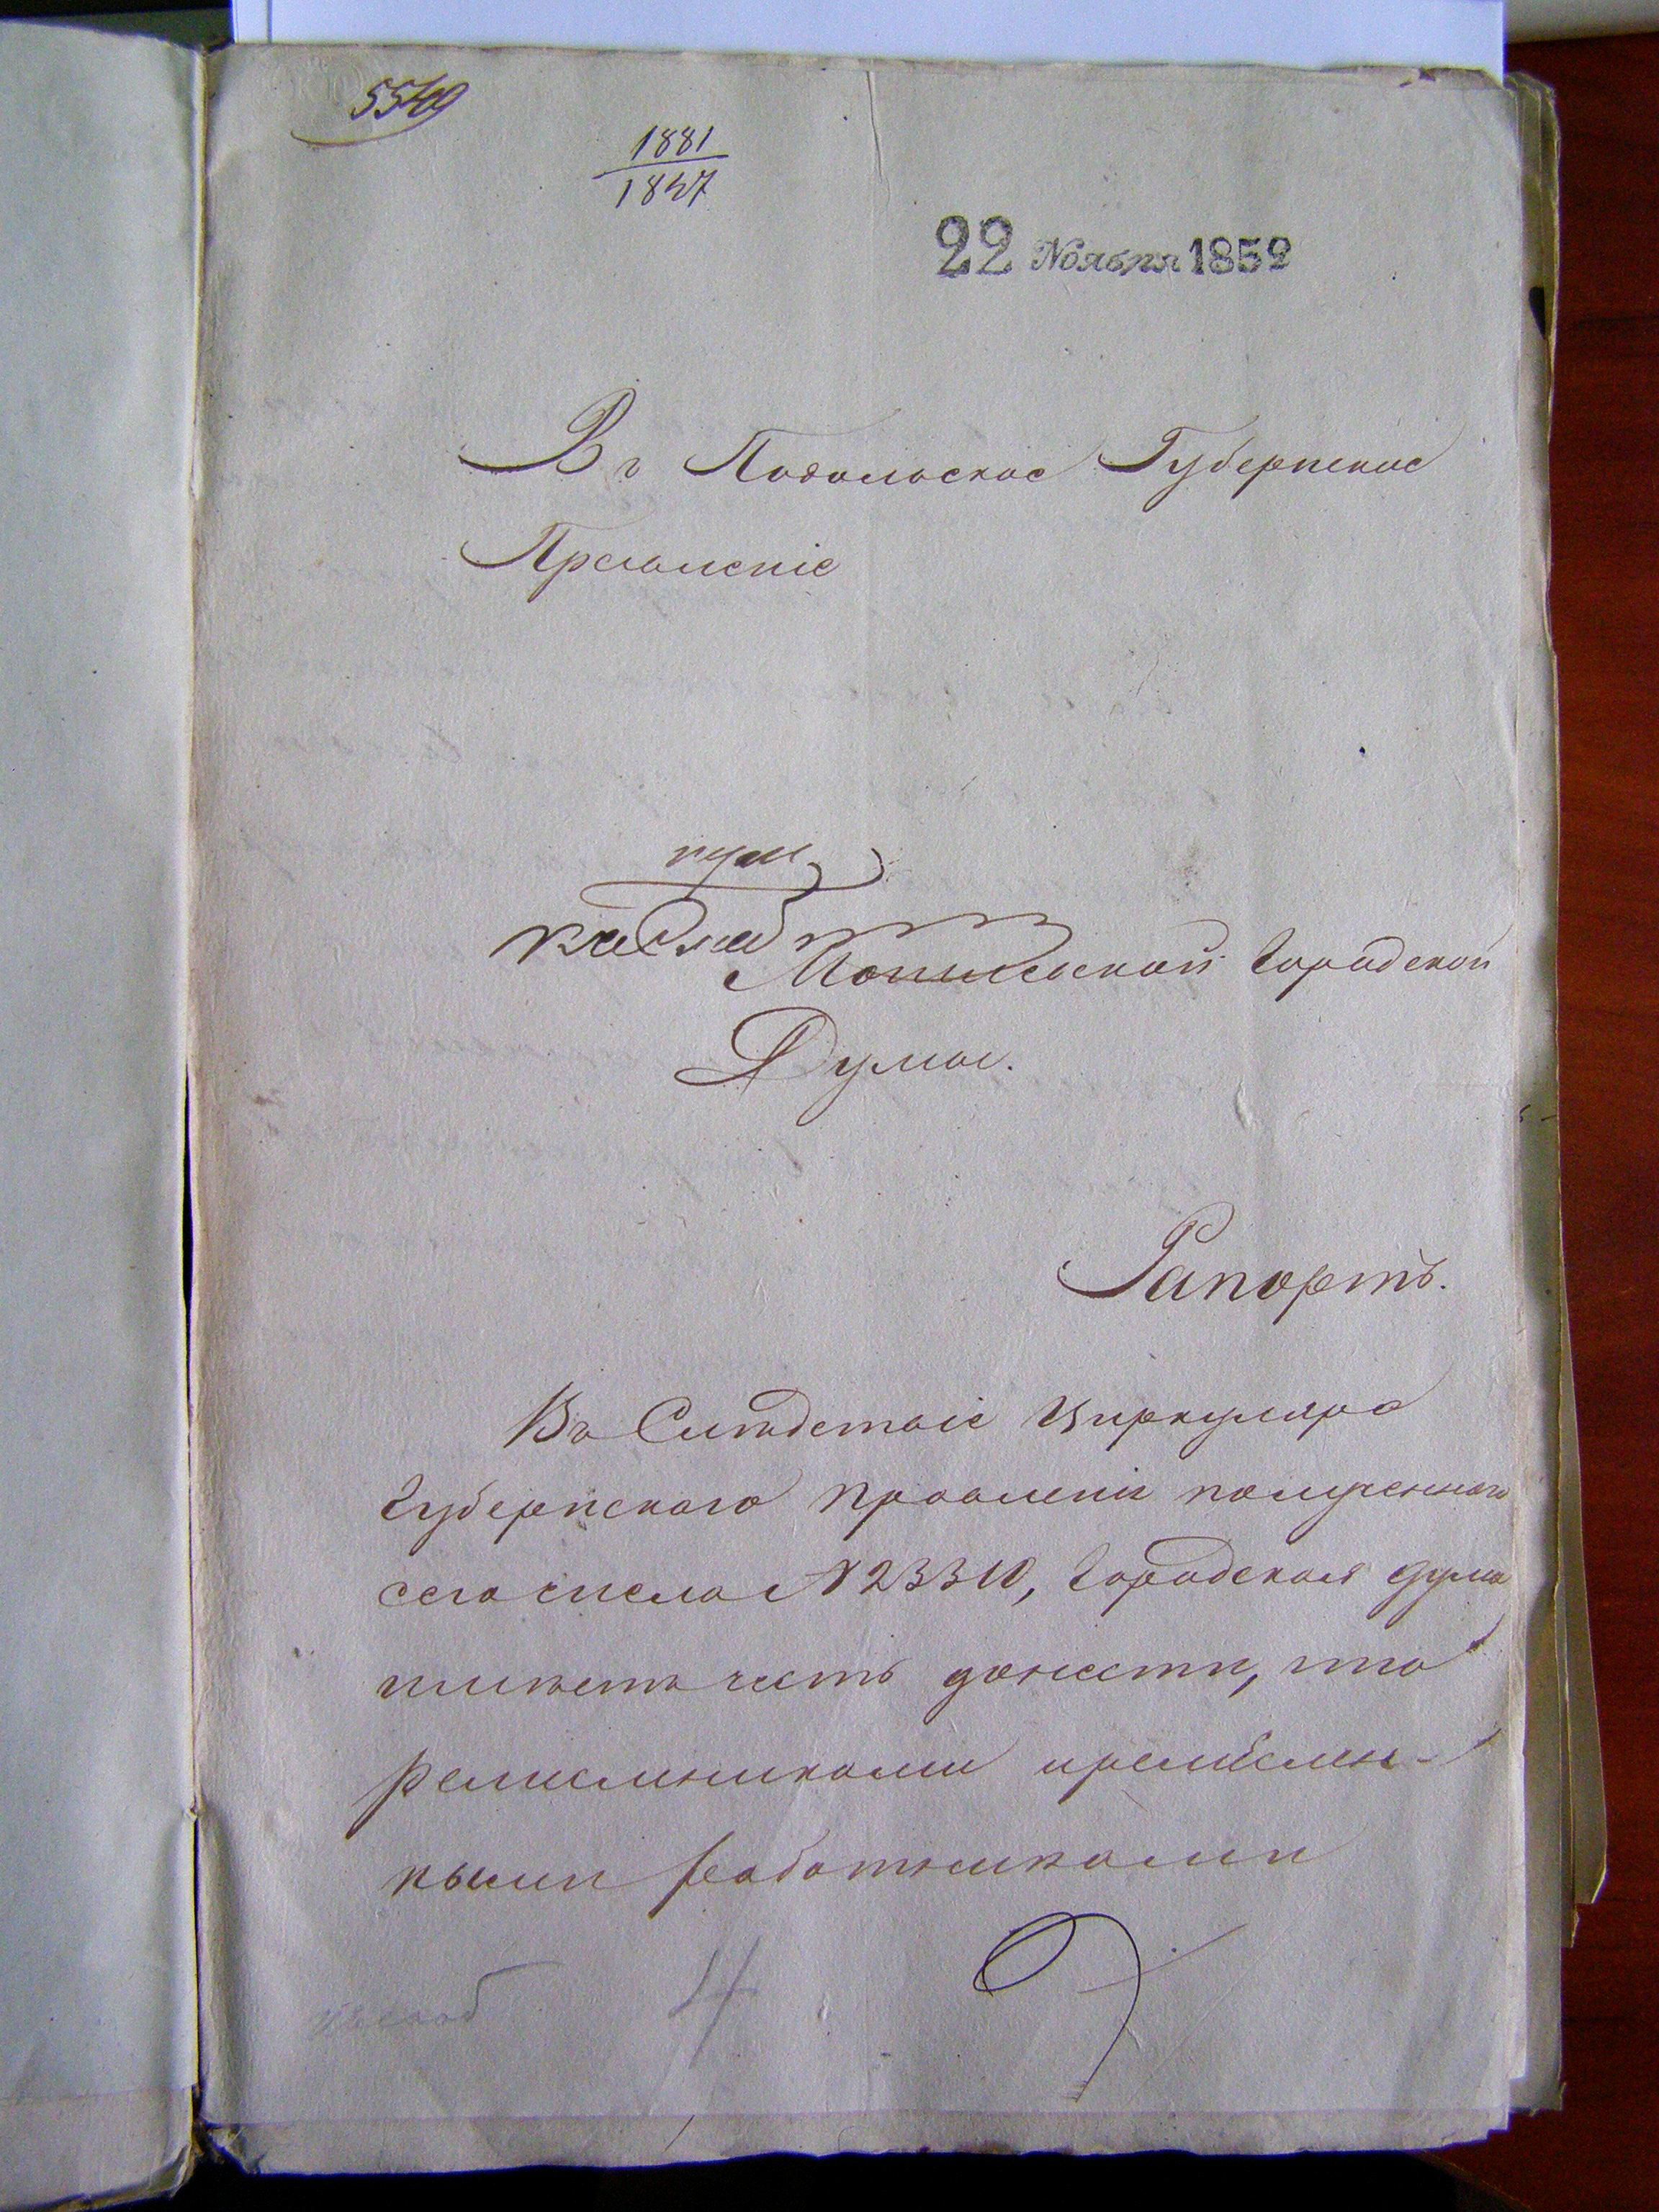 5549
1881
1847
22 Ноября 1852
Въ Подольское Губернское
Правленіе
Могилевской Городской
Думы.
Рапортъ.
Въ Слѣдствіе Циркуляра
Губернскаго Правленія полученнаго
сего числа № 23310, Городская дума
имѣетъ честь донести, что
ремисленниками иремислен-
ными работниками
4